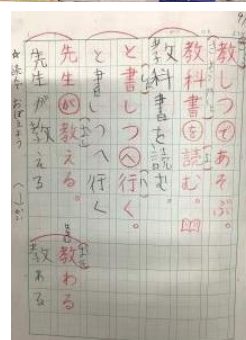 教しつであそぶ。
教科書を読む。
教科書を読む。
と書しつへ行く。
と書しつへ行く
先生が教える。
先生が教える
教わる
教わる
☆読んでおぼえよう